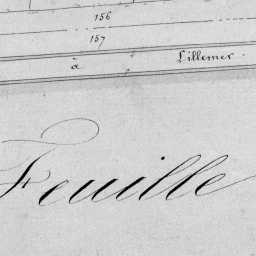 156
157
à Lillemer
Feuille